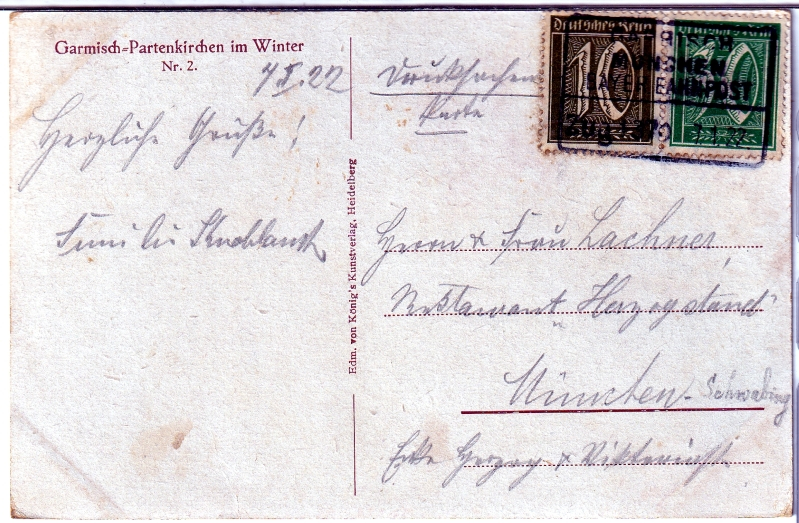 Garmisch-Partenkirchen im Winter
Nr. 2.
Drucksachen
Karte
Herzliche Grüße!
Familie
Edm. von König's Kunstverlag, Heidelberg
Deutsches Reich
10
Deutsches Reich
MÜNCHEN
BAHNPOST
Zug
Herrn & Frau Lachner,
Restaurant „Herzogstand“
München-Schwabing
Ecke Herzog & Viktoriastr